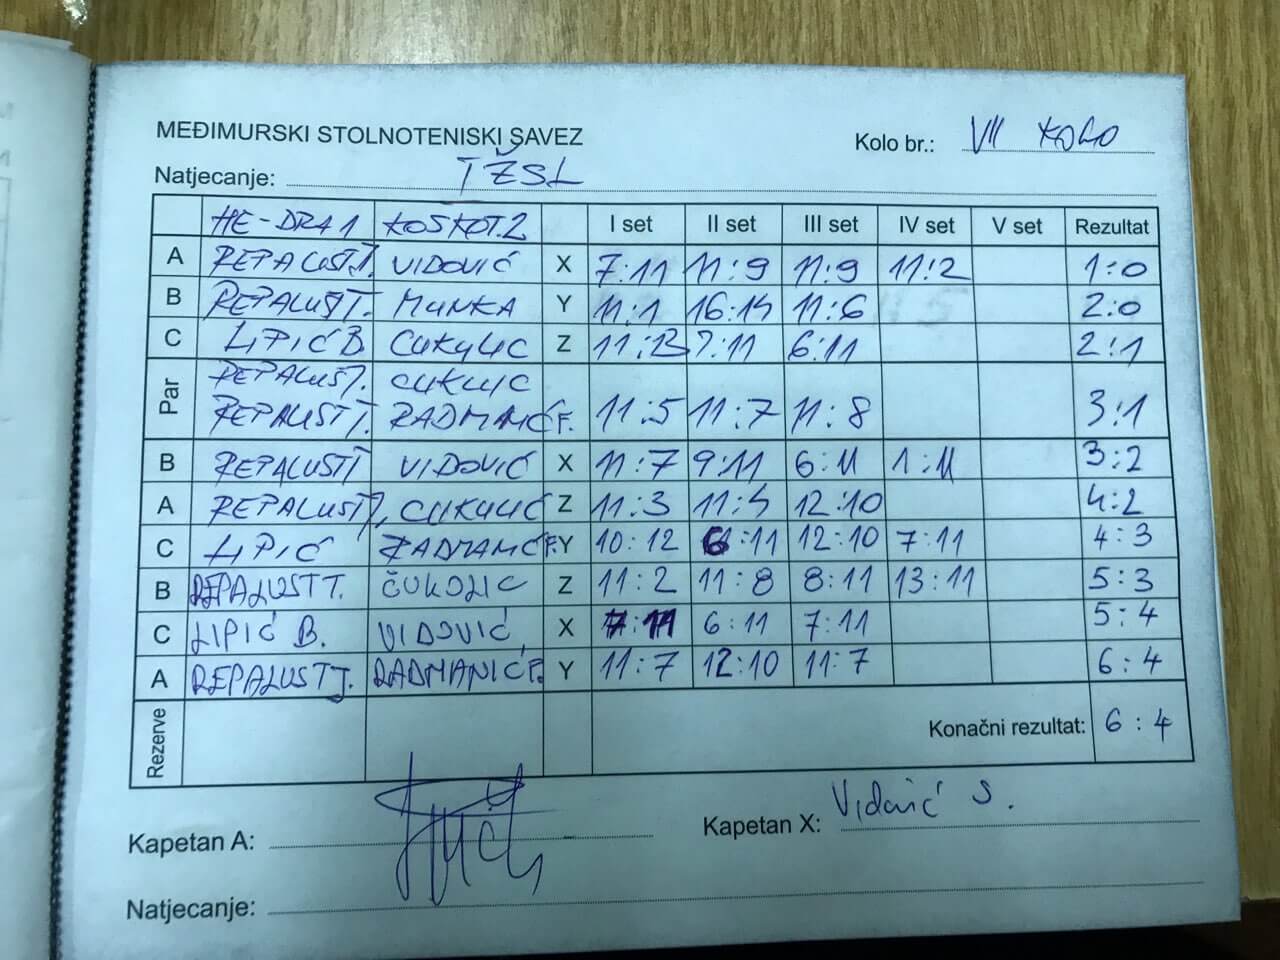 MEĐIMURSKI STOLNOTENISKI SAVEZ
Kolo br.: VII KOLO
Natjecanje: TŽSL
HE-DRA 1 KOSKOT. 2 I set II set III set IV set V set Rezultat
A REPALUST J. VIDOVIĆ X 7:11 11:9 11:9 11:2 1:0
B REPALUST T. MUNKA Y 11:1 16:14 11:6 2:0
C LIPIĆ B. CUKULIC Z 11:13 7:11 6:11 2:1
Par REPALUST J. CUKULIC
REPALUST T. RADMANIĆ F. 11:5 11:7 11:8 3:1
B REPALUST T VIDOVIĆ X 11:7 9:11 6:11 1:11 3:2
A REPALUST J. CUKULIĆ Z 11:3 11:5 12:10 4:2
C LIPIĆ RADMANIĆ F. Y 10:12 6:11 12:10 7:11 4:3
B REPALUST T. ČUKOLIC Z 11:2 11:8 8:11 13:11 5:3
C LIPIĆ B. VIDOVIĆ X 7:11 6:11 7:11 5:4
A REPALUST J. RADMANIĆ F. Y 11:7 12:10 11:7 6:4
Rezerve Konačni rezultat: 6:4
Kapetan A: Kapetan X: Vidović S.
Natjecanje: